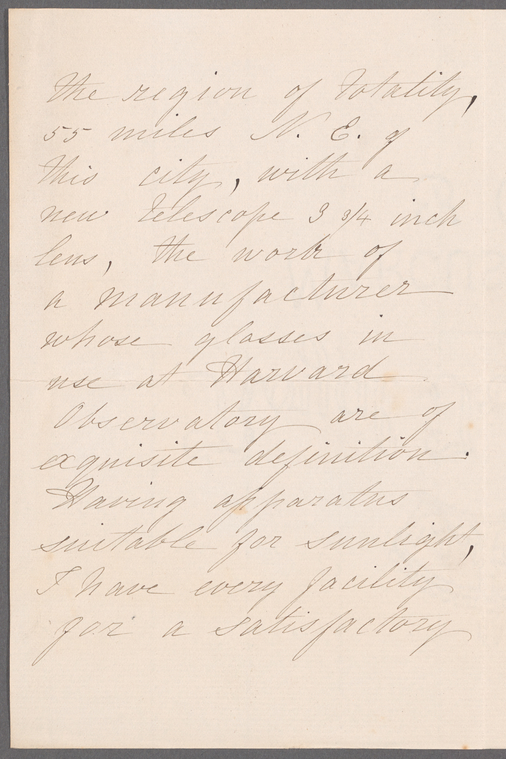 the region of totality,
55 miles N. E. of
this city, with a
new telescope 3 3/4 inch
lens, the work of
a manufacturer
whose glasses in
use at Harvard
Observatory are of
exquisite definition.
Having apparatus
suitable for sunlight,
I have every facility
for a satisfactory